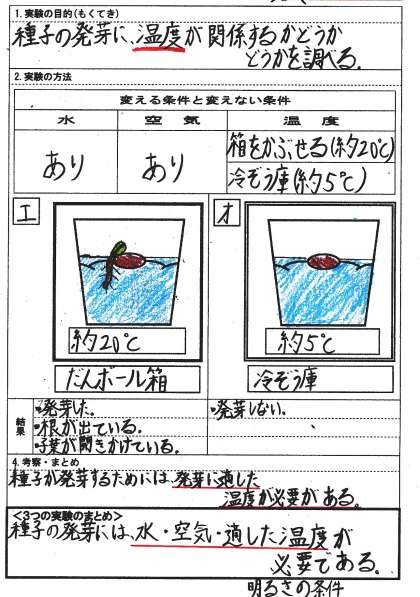 1.実験の目的(もくてき)
種子の発芽に、温度が関係するかどうか
どうかを調べる.
2.実験の方法
変える条件と変えない条件
水 空気 温度
あり あり 箱をかぶせる(約20℃)
冷ぞう庫(約5℃)
エ オ
約20℃ 約5℃
だんボール箱 冷ぞう庫
結果
・発芽した. ・発芽しない.
・根が出ている.
・子葉が開きかけている.
4.考察・まとめ
種子が発芽するためには、発芽に適した
温度が必要がある。
<3つの実験のまとめ>
種子の発芽には、水・空気・適した温度が
必要である。
明るさの条件